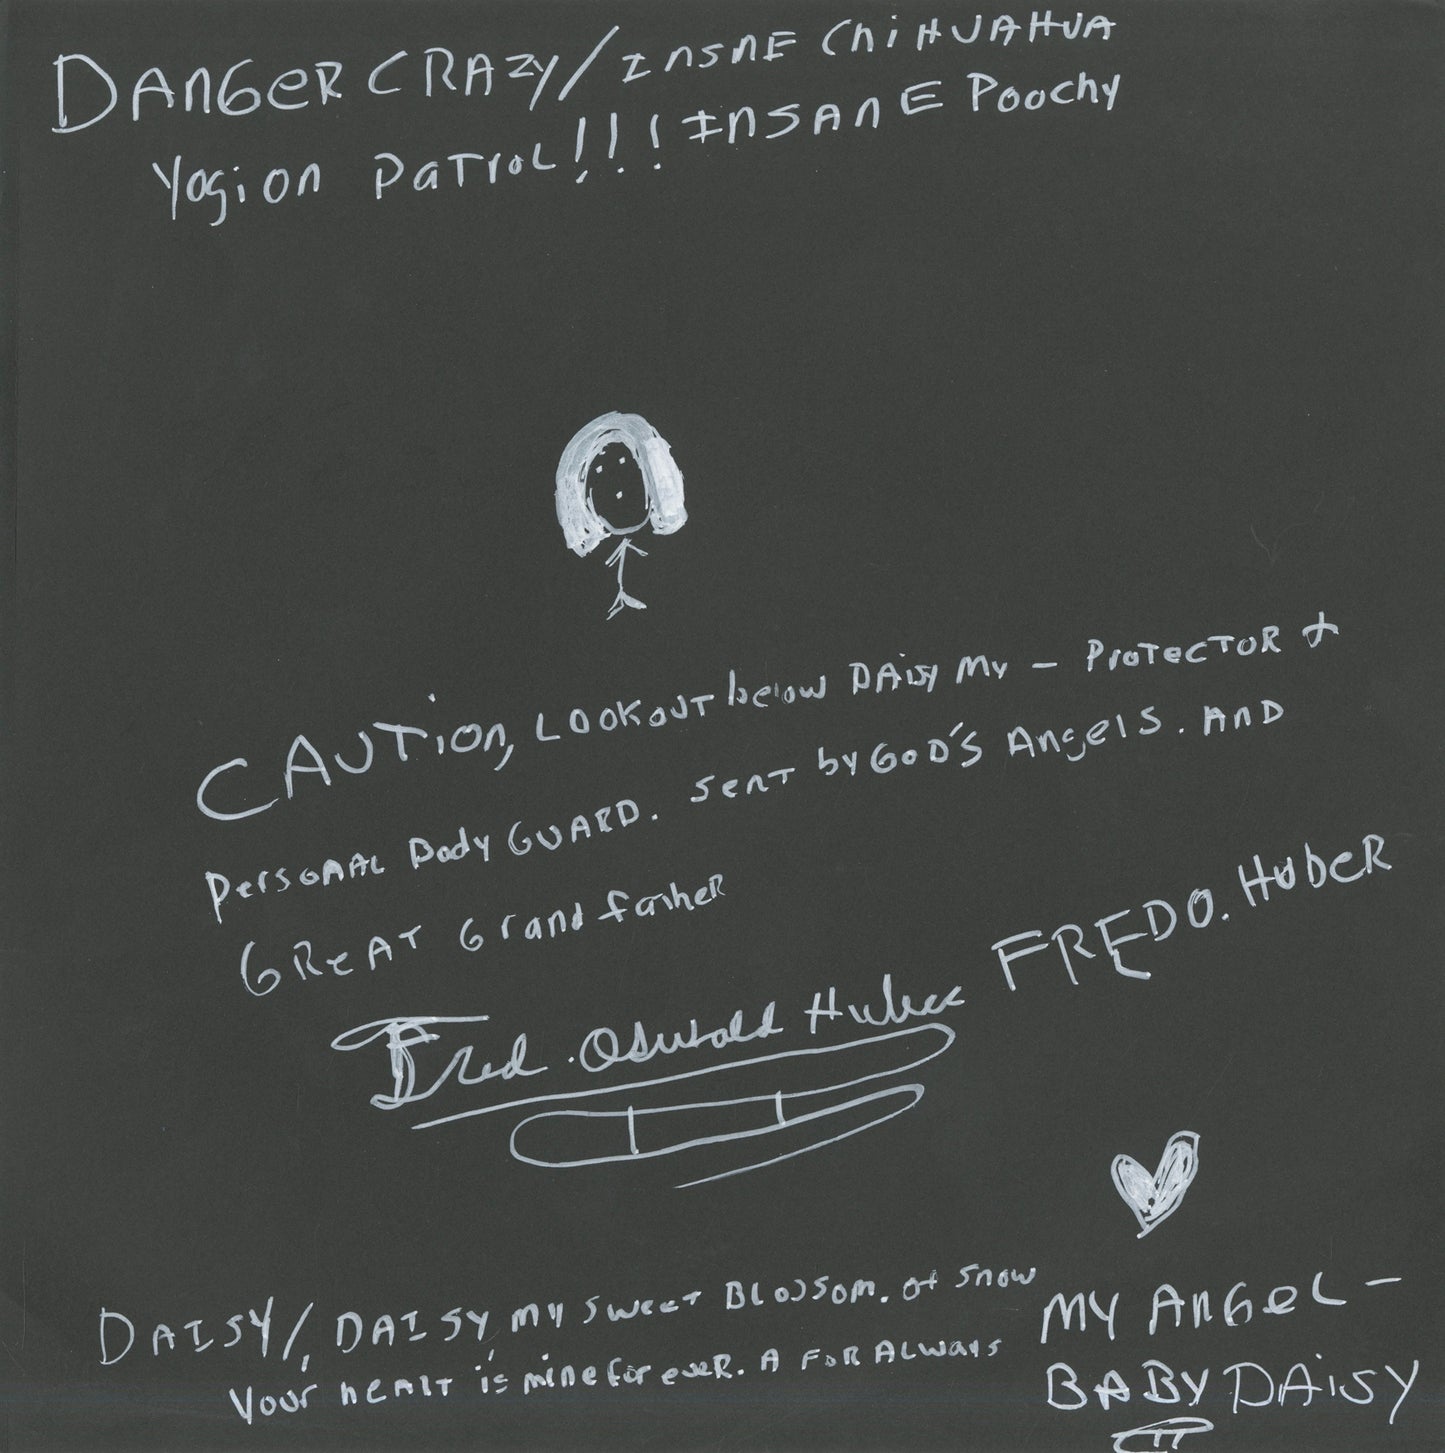 DANGER CRAZY/INSNE CHiHUAHUA
Yogi on PATrol!!! INSANE Poochy
CAUTion, LOOKOUT below DAisy My - ProTECTOR &
PersONAL Body GUARD. Sent by GOD'S Angels. AND
GREAT Grand father
FRED O. HubeR
Fred. Oswald Huber
DAISY/, DAISY, my sweet Blossom. of snow
Your heart is mine for ever. A FOR ALways
MY ANGEL -
BABY DAiSY